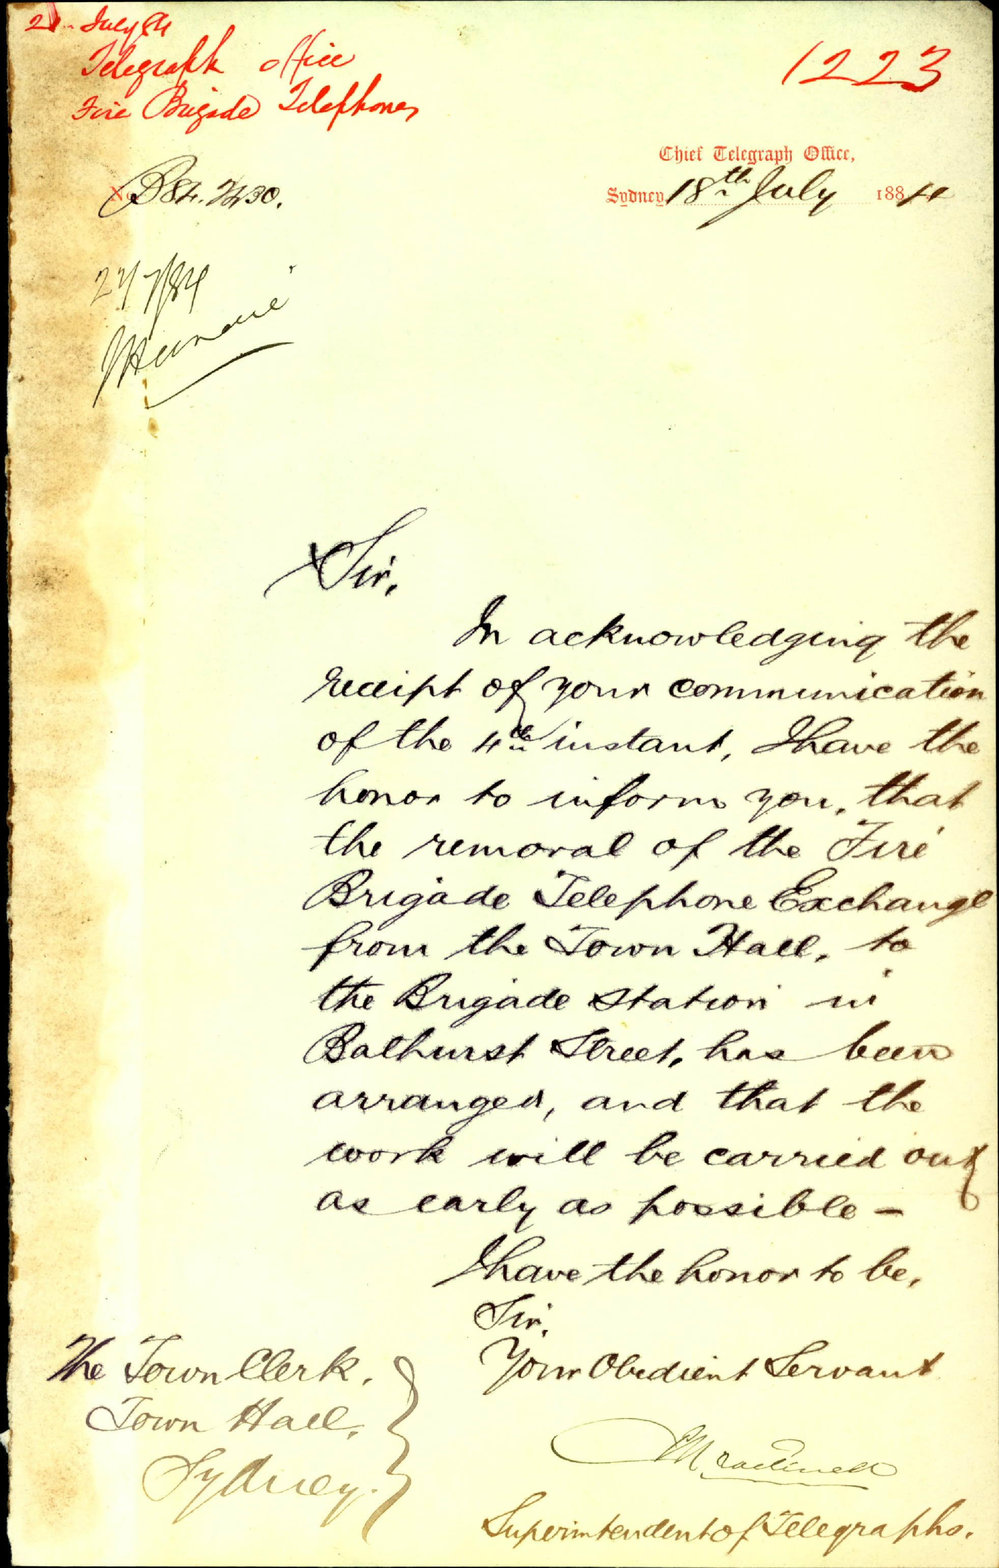 July 84
Telegraph Office
Fire Brigade Telephones
1223
Chief Telegraph Office,
Sydney 18th July 1884
B 84. 2430.
7/84
Sir,
In acknowledging the
receipt of your communication
of the 4th instant, I have the
honor to inform you, that
the removal of the Fire
Brigade Telephone Exchange
from the Town Hall, to
the Brigade Station in
Bathurst Street, has been
arranged, and that the
work will be carried out
as early as possible –
I have the honor to be,
Sir,
Your Obedient Servant
The Town Clerk.
Town Hall,
Sydney.
Superintendent of Telegraphs.